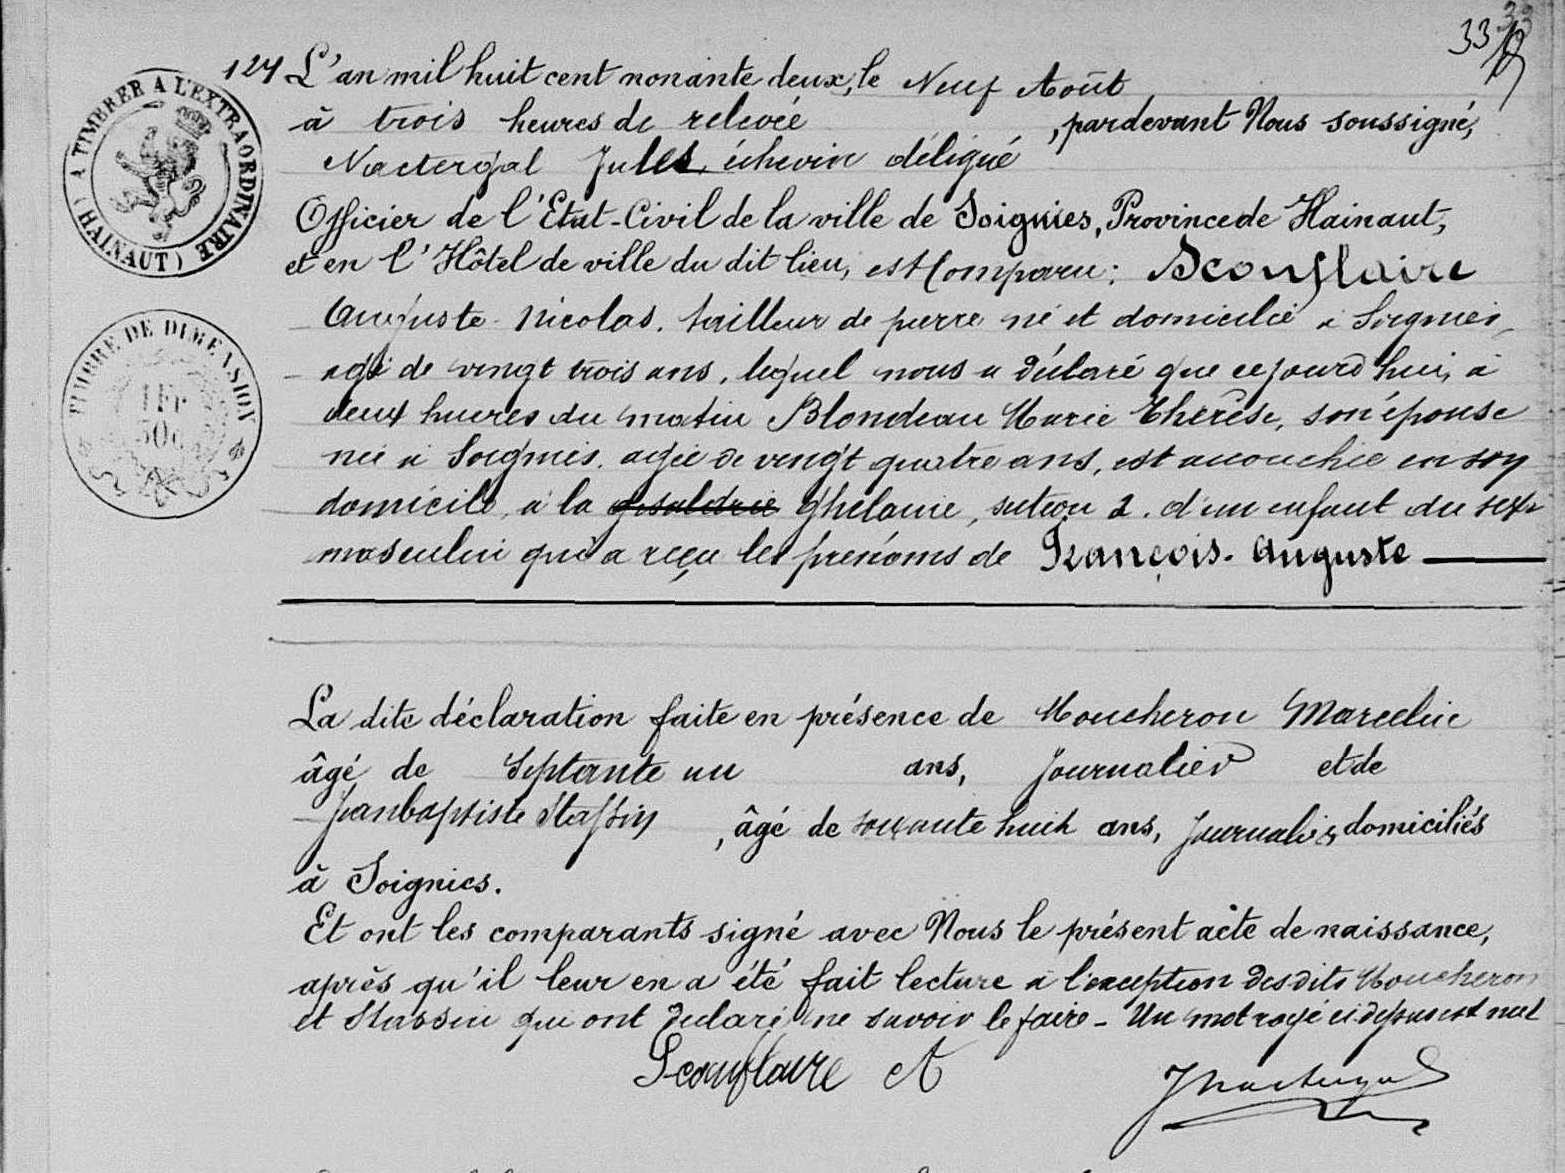 33
127 L'an mil huit cent nonante deux, le Neuf Août
à trois heures de relevée, pardevant Nous soussigné,
Nactergal Jules, échevin délégué
Officier de l'Etat-Civil de la ville de Soignies, Province de Hainaut,
et en l'Hôtel de ville du dit lieu, est Comparu: Sconflaire
Auguste Nicolas. tailleur de pierre né et domicilié à Soignies,
agé de vingt trois ans, lequel nous a déclaré que cejourd'hui, à
deux heures du matin Blondeau Marie Thérèse, son épouse
née à Soignies. agée de vingt quatre ans, est accouchée en son
domicile, à la Ghélenie, section 2. d'un enfant du sexe
masculin qui a reçu les prénoms de François-Auguste
La dite déclaration faite en présence de Moucheron Marcelin
âgé de Septante un ans, Journalier et de
Jeanbaptiste Stassin, âgé de soixante huit ans, Journalier, domiciliés
à Soignies.
Et ont les comparants signé avec Nous le présent acte de naissance,
après qu'il leur en a été fait lecture à l'exception desdits Moucheron
et Stassin qui ont déclaré ne savoir le faire - Un mot rayé ci dessus est nul
Sconflaire A
JNactergal
A TIMBRER A L'EXTRAORDINAIRE (HAINAUT)
TIMBRE DE DIMENSION
1 Fr
50c